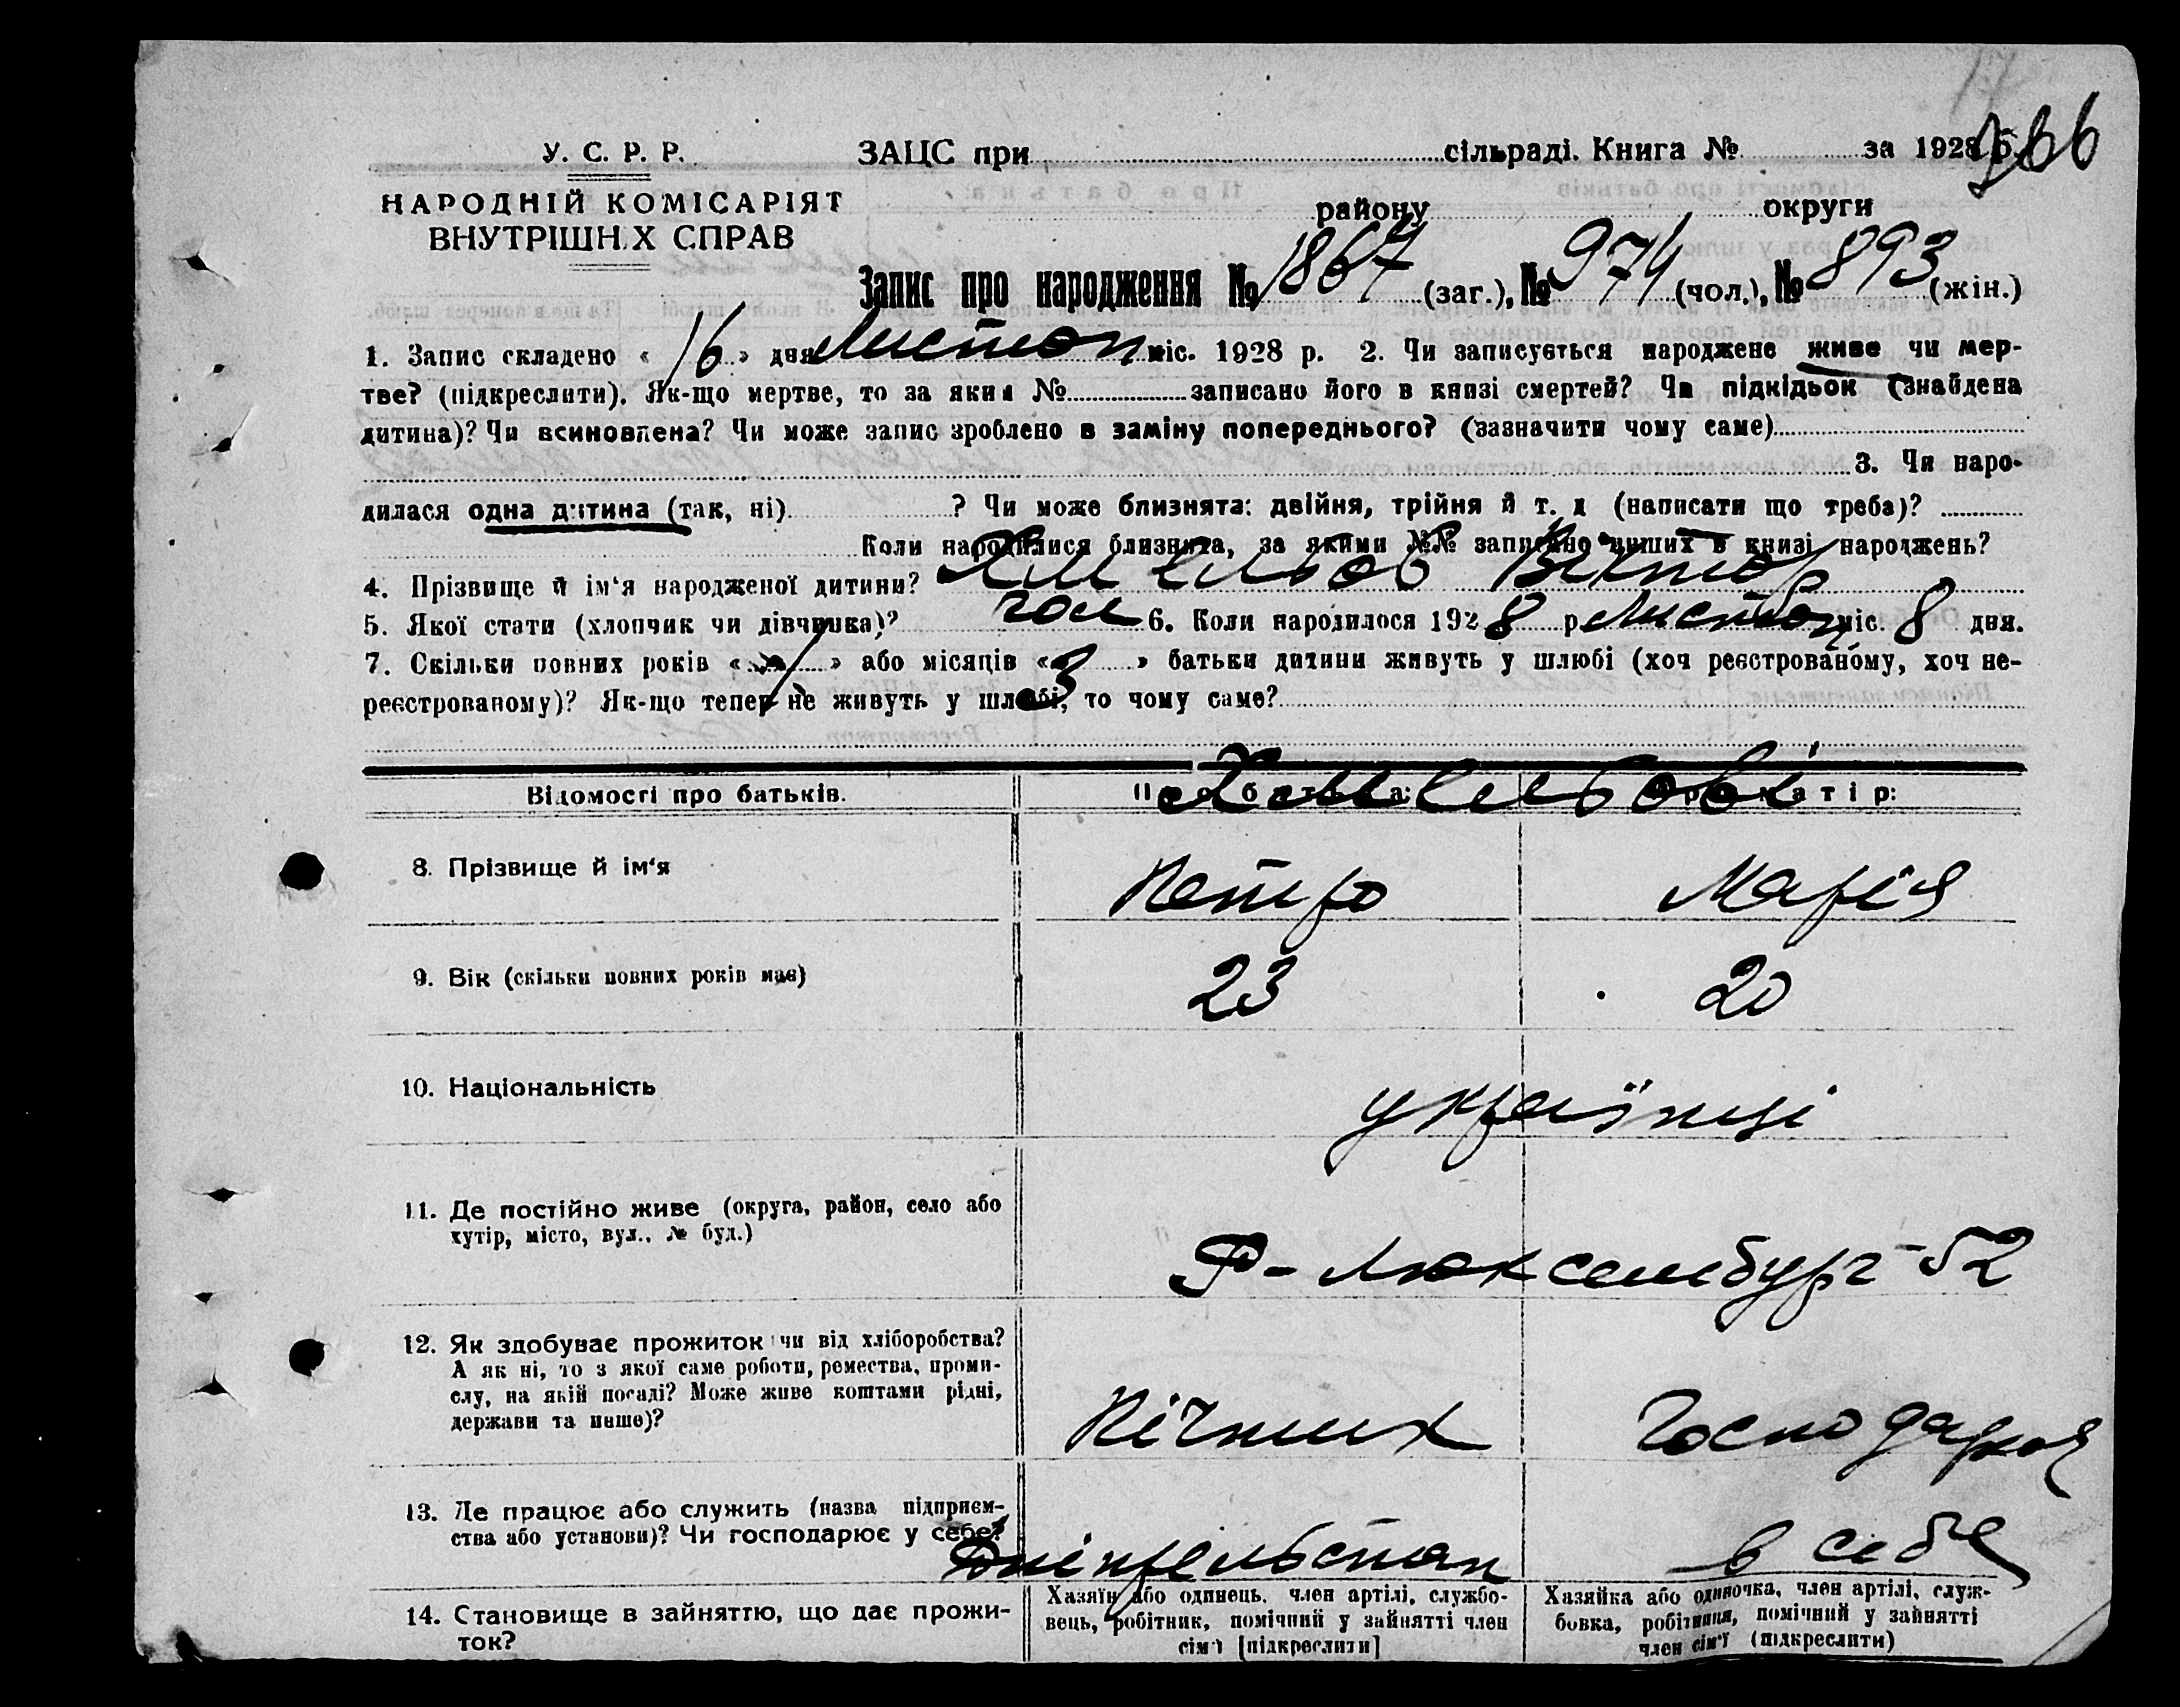 17
У. С. Р. Р. ЗАЦС при сільраді. Книга № за 1928 166
НАРОДНІЙ КОМІСАРІЯТ району округи
ВНУТРІШН.Х СПРАВ
Запис про народження № 1867 (заг.), № 974 (чол.), № 893 (жін.)
1. Запис складено « 16 » дня Листоп міс. 1928 р. 2. Чи записується народжене живе чи мер-
тве? (підкреслити). Як-що мертве, то за яким № записано його в книзі смертей? Чи підкідьок (знайдена
дитина)? Чи всиновлена? Чи може запис зроблено в заміну попереднього? (зазначити чому саме)
3. Чи наро-
дилася одна дитина (так, ні) ? Чи може близнята: двійня, трійня й т. д (написати що треба)?
Коли народилися близнята, за якими №№ записано инших в книзі народжень?
4. Прізвище й ім'я народженої дитини? Хмельов Віктор
5. Якої стати (хлопчик чи дівчинка)? чол 6. Коли народилося 1928 р Листоп міс. 8 дня.
7. Скільки повних років « » або місяців « » батьки дитини живуть у шлюбі (хоч реєстрованому, хоч не-
реєстрованому)? Як-що тепер не живуть у шлюбі, то чому саме?
Відомості про батьків. Про батька: Про матір:
Хмельові
8. Прізвище й ім'я Петро Марія
9. Вік (скільки повних років має) 23 20
10. Національність українці
11. Де постійно живе (округа, район, село або
хутір, місто, вул., № буд.)
Р-Люксембург-52
12. Як здобуває прожиток чи від хліборобства?
А як ні, то з якої саме роботи, ремества, проми-
слу, на якій посаді? Може живе коштами рідні,
держави та инше)?
Пічник Господарка
13. Де працює або служить (назва підприєм-
ства або установи)? Чи господарює у себе?
Дніпрельстан в себе
14. Становище в зайняттю, що дає прожи-
ток?
Хазяїн або одинець, член артілі, службо-
вець, робітник, помічний у зайнятті член
сім'ї [підкреслити]
Хазяйка або одиночка, член артілі, служ-
бовка, робітниця, помічний у зайнятті
член сім'ї (підкреслити)